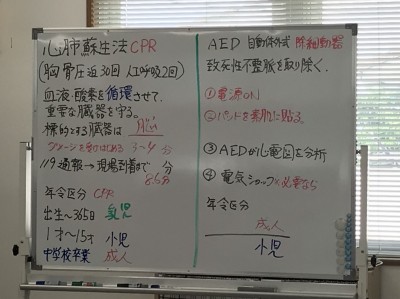 心肺蘇生法 CPR
(胸骨圧迫30回 人工呼吸2回)
血液・酸素を循環させて、
重要な臓器を守る。
標的とする臓器は 脳
ダメージを受けはじめる 3~4 分
119通報→現場到着まで 分
8.6分
年令区分 CPR
出生~365日 乳児
1才~15才 小児
中学校卒業 成人
AED 自動体外式 除細動器
致死性不整脈を取り除く。
①電源ON
②パットを素肌に貼る。
③AEDが心電図を分析
④電気ショック 必要なら
年令区分
成人
小児